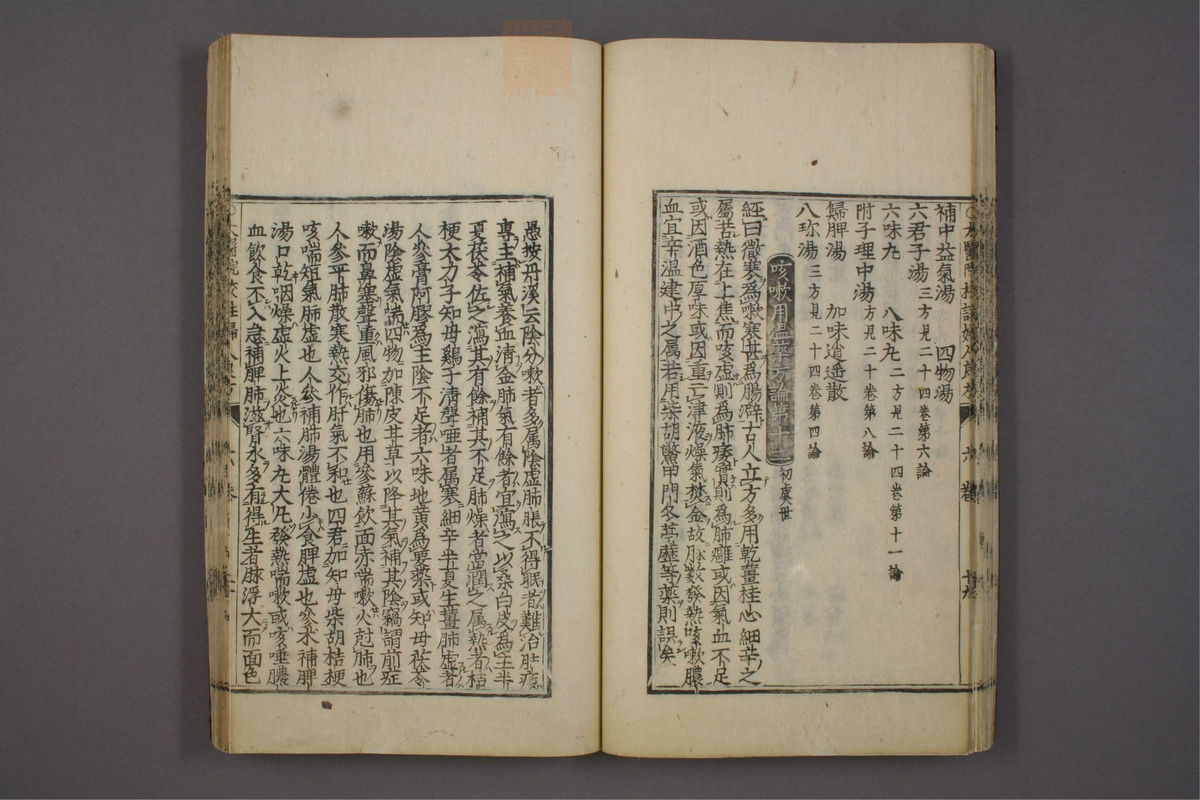 補中益氣湯 四物湯
六君子湯 三方見二十四卷第六論
六味丸 八味丸 二方見二十四卷第十一論
附子理中湯 方見二十卷第八論
歸脾湯 加味逍遥散
八珎湯 三方見二十四卷第四論
咳嗽用温藥方論第十三 初虞世
經曰微寒為嗽寒甚為腸澼古人立方多用乾薑桂心細辛之
屬若熱在上焦而咳虚則為肺痿實則為肺癰或因氣血不足
或因酒色厚味或因重亡津液燥氣焚金故脉數發熱咳嗽膿
血宜辛温建中之属若用柴胡鱉甲門冬葶藶等藥則誤矣
愚按丹溪云陰分嗽者多属陰虚肺脹不得眠者難治肚痿
專主補氣養血清金肺氣有餘者宜瀉之以桑白皮為主半
夏茯苓佐之瀉其有餘補其不足肺燥者當潤之属熱者桔
梗大力子知母鷄子清聲啞者属寒細辛半夏生薑肺虚者
人參膏阿膠為主陰不足者六味地黄為要藥或知母茯苓
湯陰虚氣喘四物加陳皮甘草以降其氣補其陰竊謂前症
嗽而鼻塞聲重風邪傷肺也用參蘇飲面赤喘嗽火尅肺也
人參平肺散寒熱交作肝氣不和也四君加知母柴胡桔梗
咳喘短氣肺虚也人參補肺湯體倦少食脾虚也參朮補脾
湯口乾咽燥虚火上炎也六味丸大凡發熱喘嗽或咳唾膿
血飲食不入急補脾肺滋腎水多有得生者脉浮大而面色